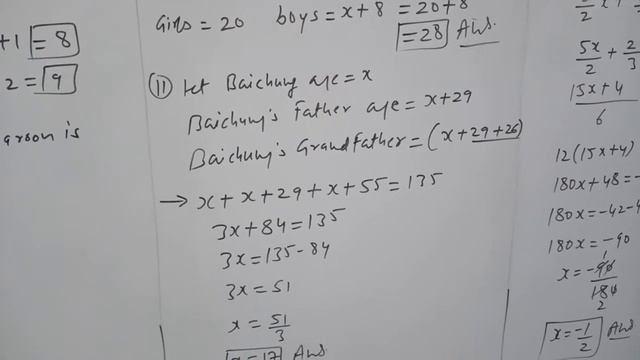 +1 = 8
2 = 9
Girls = 20 boys = x + 8 = 20 + 8
= 28 Ans.
(11) Let Baichung age = x
Baichung's Father age = x + 29
Baichung's GrandFather = (x + 29 + 26)
→ x + x + 29 + x + 55 = 135
3x + 84 = 135
3x = 135 - 84
3x = 51
x = 51/3
x = 17 Ans
5x/2 + 2/3
15x + 4
6
12(15x + 4)
180x + 48 = -
180x = -42 - 4
180x = -90
x = -90/180
2
x = -1/2 Ans